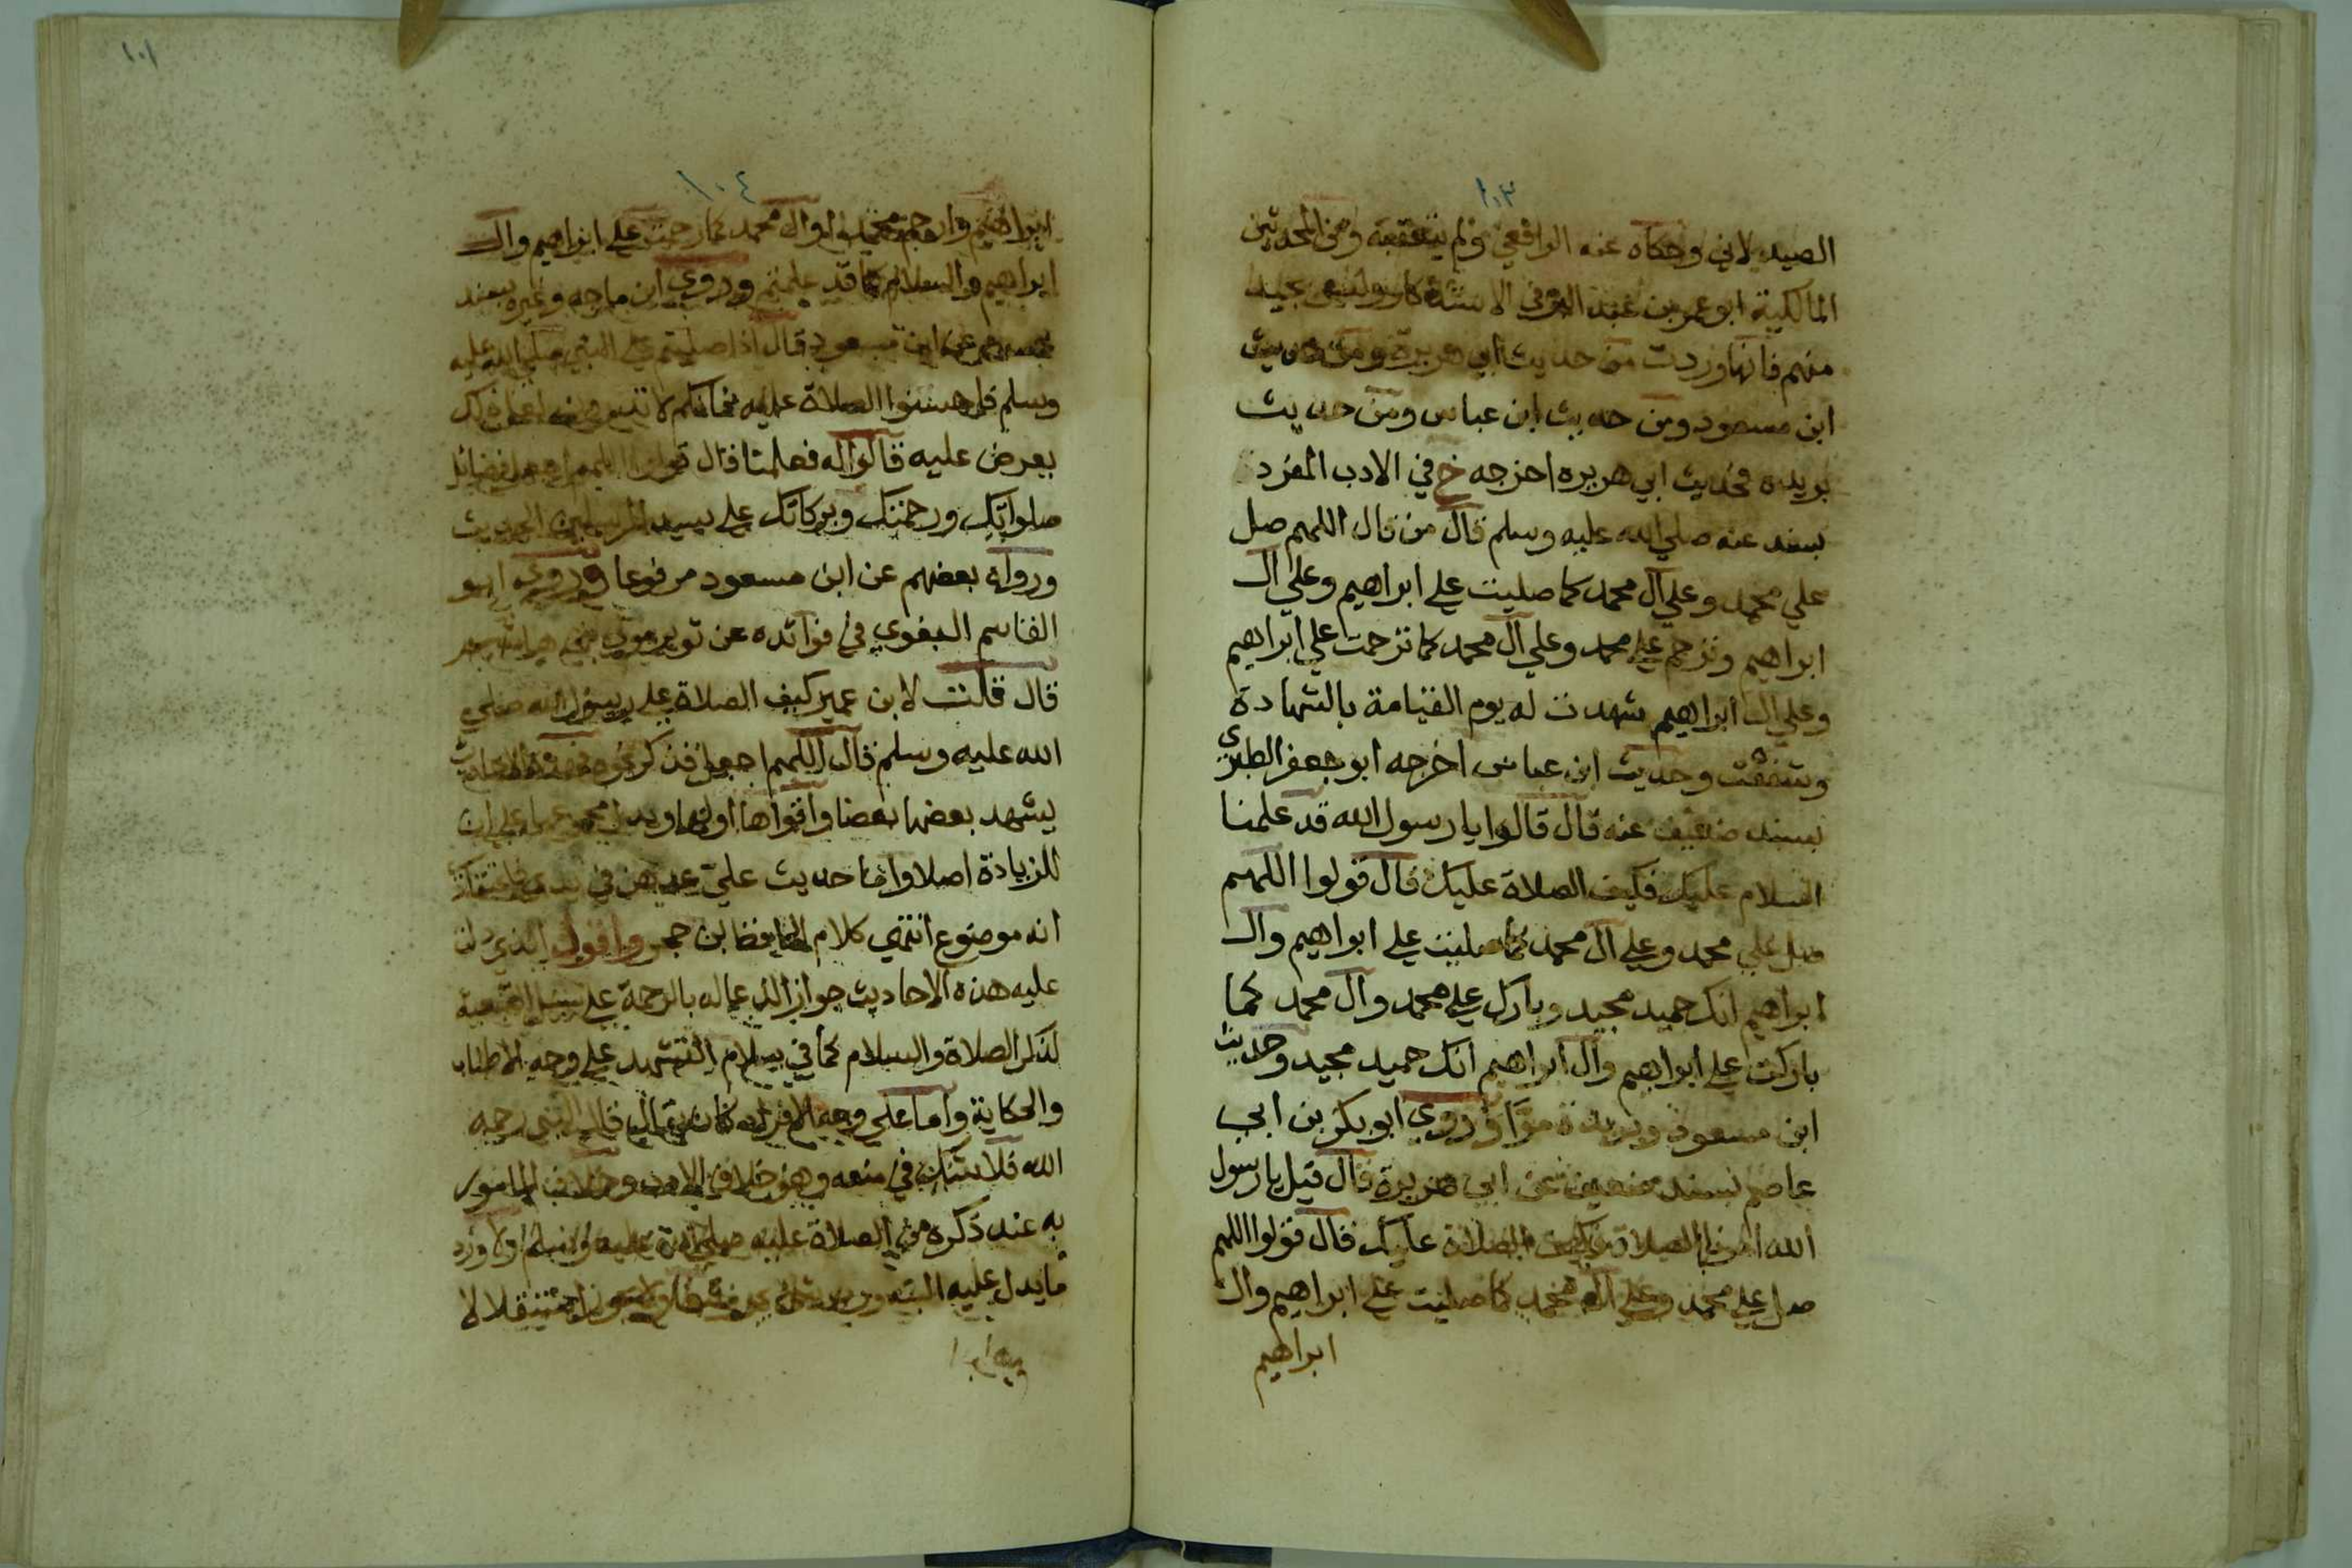 ١٠٣
الصيدلاني وحكاه عنه الرافعي ولم يتعقبه ومن المحدثين
المالكية ابو عمر بن عبد البر في الاستذكار
منهم فانها وردت من حديث ابي هريرة ومن حديث
ابن مسعود ومن حديث ابن عباس ومن حديث
بريدة فحديث ابي هريره اخرجه خ في الادب المفرد
بسند عنه صلي الله عليه وسلم قال من قال اللهم صل
علي محمد وعلي آل محمد كما صليت علي ابراهيم وعلي آل
ابراهيم وترحم علي محمد وعلي آل محمد كما ترحمت علي ابراهيم
وعلي آل ابراهيم شهدت له يوم القيامة بالشهادة
وشفعت وحديث ابن عباس اخرجه ابو جعفر الطبري
بسند ضعيف عنه قال قالوا يا رسول الله قد علمنا
السلام عليك فكيف الصلاة عليك قال قولوا اللهم
صل علي محمد وعلي آل محمد كما صليت علي ابراهيم وآل
ابراهيم انك حميد مجيد وبارك علي محمد وآل محمد كما
باركت علي ابراهيم وآل ابراهيم انك حميد مجيد وحديث
ابن مسعود وبريدة مرا وروي ابو بكر بن ابي
عاصم بسند ضعيف عن ابي هريرة قال قيل يا رسول
الله امرنا بالصلاة فكيف الصلاة عليك قال قولوا اللهم
صل علي محمد وعلي آل محمد كما صليت علي ابراهيم وآل
ابراهيم
١٠١
١٠٤
ابراهيم وارحم محمدا وآل محمد كما رحمت علي ابراهيم وآل
ابراهيم والسلام كما قد علمتم وروي ابن ماجه وغيره بسند
عن ابن مسعود قال اذا صليتم علي النبي صلي الله عليه
وسلم فاحسنوا الصلاة عليه فانكم لا تدرون لعل ذلك
يعرض عليه قالوا له فعلمنا قال قولوا اللهم اجعل فضائل
صلواتك ورحمتك وبركاتك علي سيد المرسلين الحديث
ورواه بعضهم عن ابن مسعود مرفوعا وروي ابو
القاسم البغوي في فوائده عن ثوير مولي بني هاشم
قال قلت لابن عمر كيف الصلاة علي رسول الله صلي
الله عليه وسلم قال اللهم اجعل فذكر نحوه فهذه الاحاديث
يشهد بعضها بعضا واقواها اولها ويدل مجموعها علي ان
للزيادة اصلا واما حديث علي عدهن في يدي
انه موضوع انتهي كلام الحافظ ابن حجر واقول الذي دلت
عليه هذه الاحاديث جواز الدعاء له بالرحمة علي سبيل التبعية
لذكر الصلاة والسلام كما في سلام التشهد علي وجه الاطناب
والحكاية واما علي وجه الافراد كان يقال قال النبي رحمه
الله فلا شك في منعه وهو خلاف الادب وخلاف المامور
به عند ذكره من الصلاة عليه صلي الله عليه وسلم ولا ورد
ما يدل عليه البتة